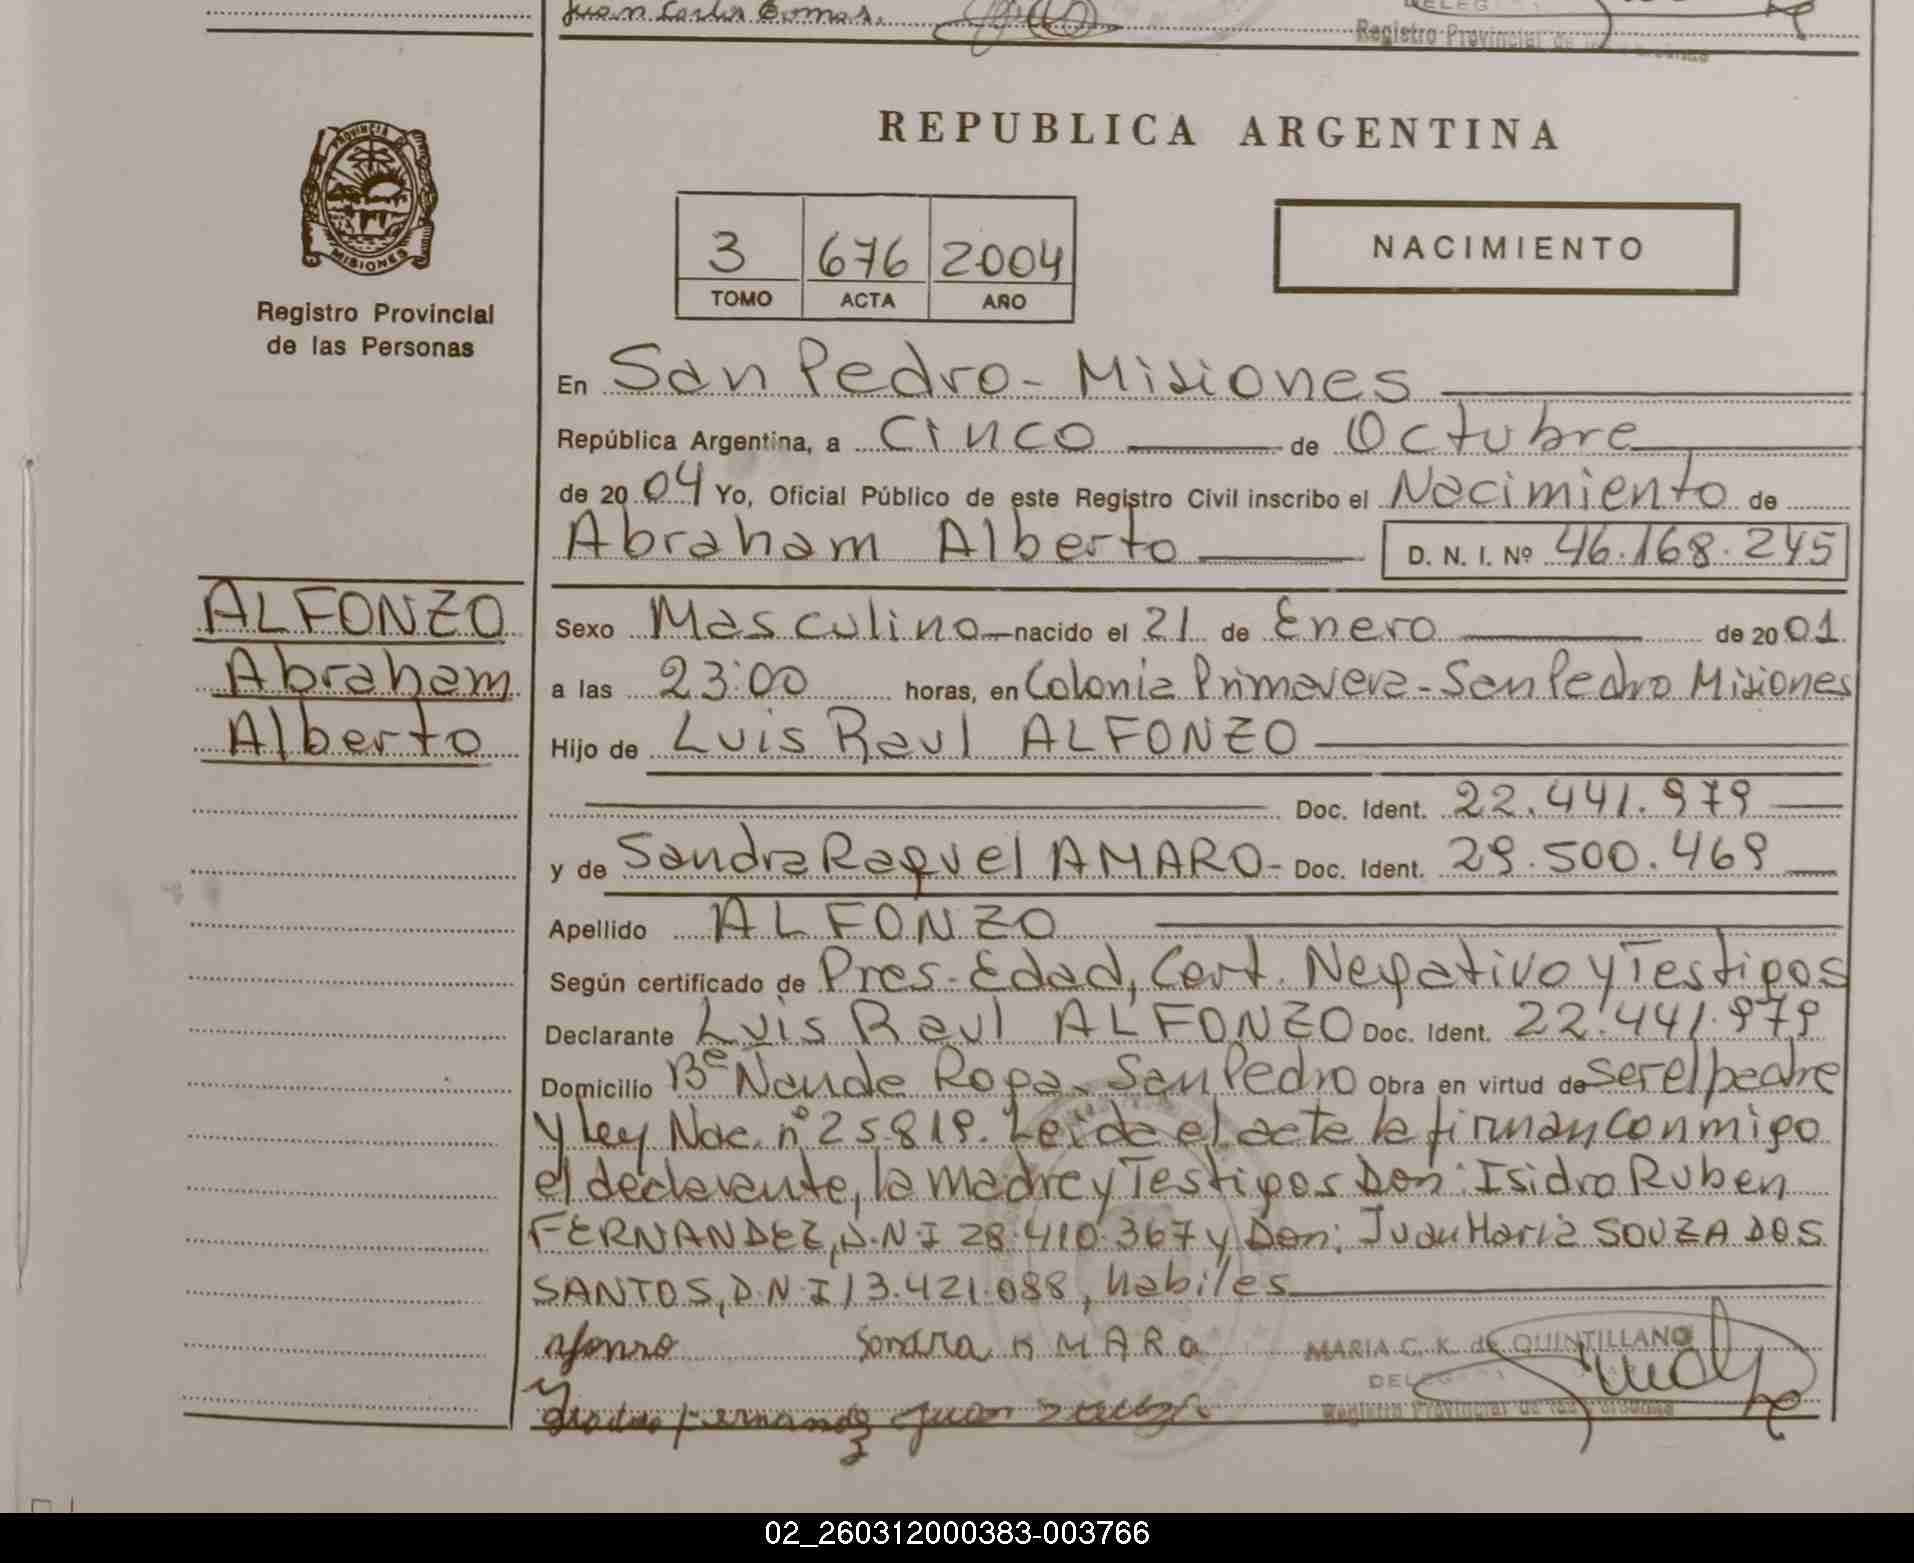 Juan Carlos Gomas.
Registro Provincial de las Personas
REPUBLICA ARGENTINA
PROVINCIA DE
MISIONES
Registro Provincial
de las Personas
3 676 2004
TOMO ACTA AÑO
NACIMIENTO
En San Pedro - Misiones
República Argentina, a Cinco de Octubre
de 20 04 Yo, Oficial Público de este Registro Civil inscribo el Nacimiento de
Abraham Alberto D. N. I. Nº 46.168.245
ALFONZO
Abraham
Alberto
Sexo Masculino nacido el 21 de Enero de 20 01.
a las 23:00 horas, en Colonia Primavera - San Pedro Misiones
Hijo de Luis Raul ALFONZO
Doc. Ident. 22.441.979
y de Sandra Raquel AMARO - Doc. Ident. 29.500.469
Apellido ALFONZO
Según certificado de Pres. Edad, Cert. Negativo y Testigos
Declarante Luis Raul ALFONZO Doc. Ident. 22.441.979
Domicilio Bº Ñande Roga - San Pedro Obra en virtud de ser el padre
y Ley Nac. nº 25.819. Leida el acta la firman conmigo
el declarante, la madre y Testigos Don: Isidro Ruben
FERNANDEZ, D.N.I 28.410.367 y Don: Juan Maria SOUZA DOS
SANTOS, D.N.I 13.421.088, habiles
Sandra AMARO
MARIA C. K. de QUINTILLANO
DELEG
Registro Provincial de las Personas
02_260312000383-003766